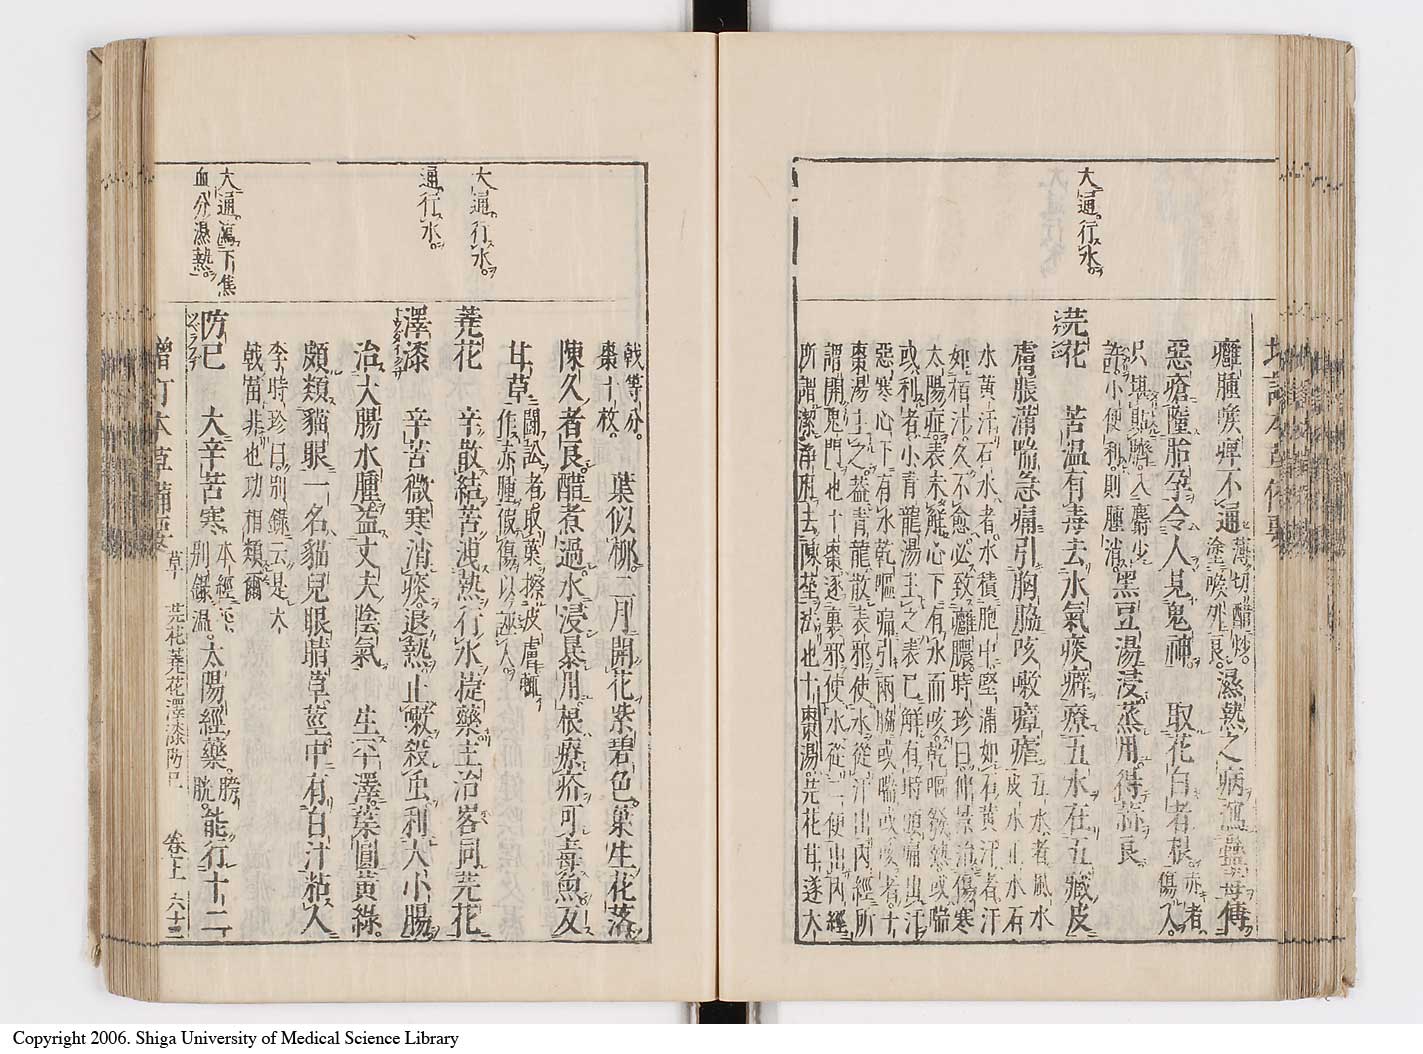 癰腫喉痺不通薄切醋炒。塗喉外良。濕熱之病瀉蠱毒傳
惡瘡墮胎孕令人見鬼神 取花白者根。赤者傷人。
只堪貼臍。入麝少許小便利。則腫消。黑豆湯浸蒸用。得蒜良
大通行水。
芫花 苦溫有毒去水氣痰癖療五水在五臟皮
膚脹滿喘急痛引胸脇咳嗽瘴瘧五水者風水皮水正水石
水黃汗石水者水積胞中堅滿如石黃汗者汗
如栢汁久不愈必致癰膿。時珍曰。仲景治傷寒
太陽症表未解心下有水而咳。乾嘔發熱或喘
或利者小青龍湯主之表已解有時頭痛出汗
惡寒心下有水乾嘔痛引兩脇或喘或咳者十
棗湯主之。蓋青龍散表邪使水從汗出內經所
謂開鬼門也十棗逐裏邪使水從二便出內經
所謂潔淨府去陳莝法也十棗湯。芫花甘遂大
戟等分。棗十枚。 葉似柳。二月開花紫碧色葉生花落
陳久者良醋煮過水浸暴用。根療疥可毒魚反
甘草鬪訟者取葉擦皮膚輒作赤腫假傷以誣人。
大通行水。
蕘花 辛散結苦洩熱行水捷藥主治畧同芫花
通行水。
澤漆 辛苦微寒消痰退熱止嗽殺虫利大小腸
治大腸水腫益丈夫陰氣 生平澤葉圓黃綠。
頗類貓眼一名貓兒眼睛草莖中有白汁粘人
李時珍曰。別錄云是大
戟苗非也功相類爾
大通瀉下焦
血分濕熱。
防已 大辛苦寒本經平別錄溫。太陽經藥。能行十二
增訂本草備要 草 芫花蕘花澤漆防已 卷上 六十三
Copyright 2006. Shiga University of Medical Science Library